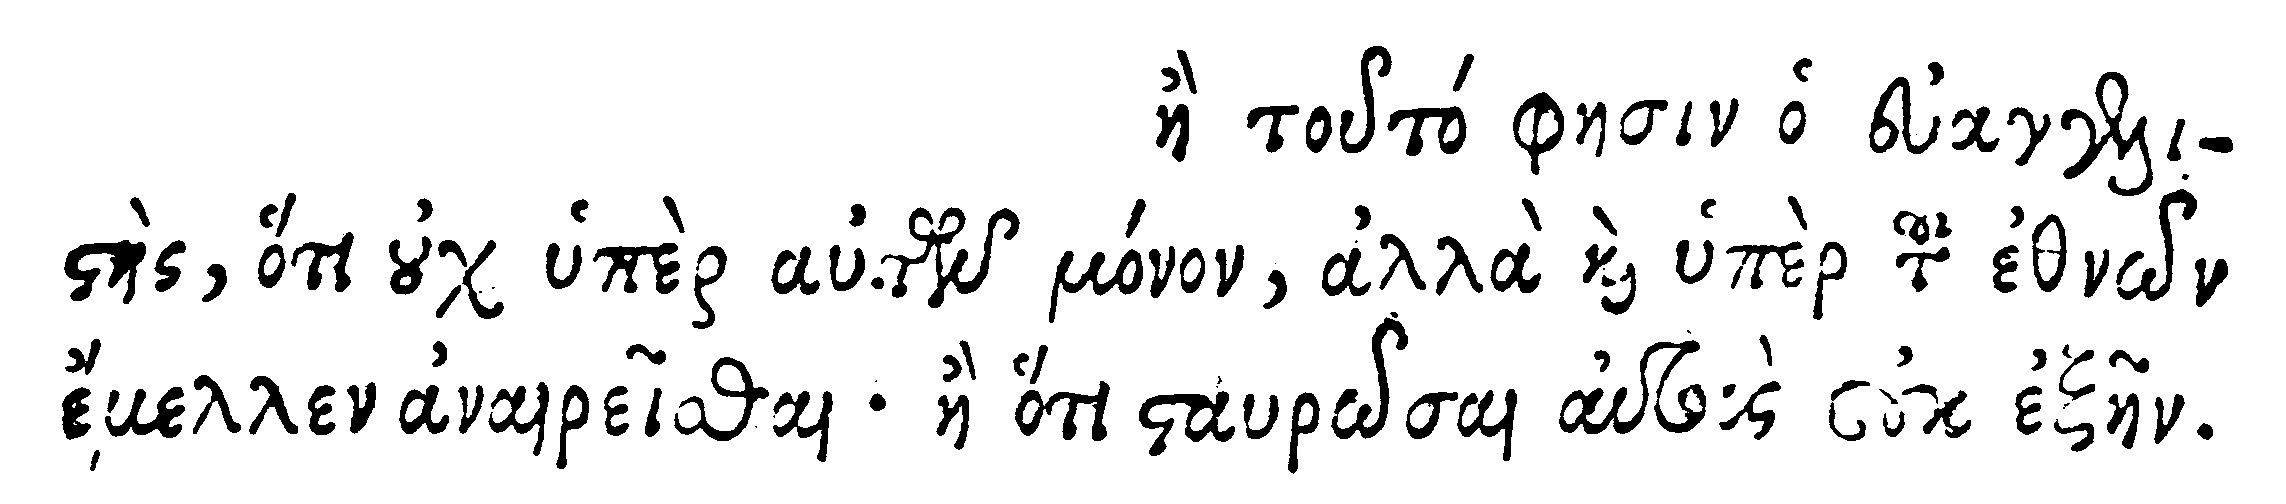 ἢ τοῦτό φησιν ὁ εὐαγγελι-
στὴς, ὅτι οὐχ ὑπὲρ αὐτῶν μόνον, ἀλλὰ καὶ ὑπὲρ τῶν ἐθνῶν
ἔμελλεν ἀναιρεῖσθαι· ἢ ὅτι σταυρῶσαι αὐτοῖς οὐκ ἐξῆν.